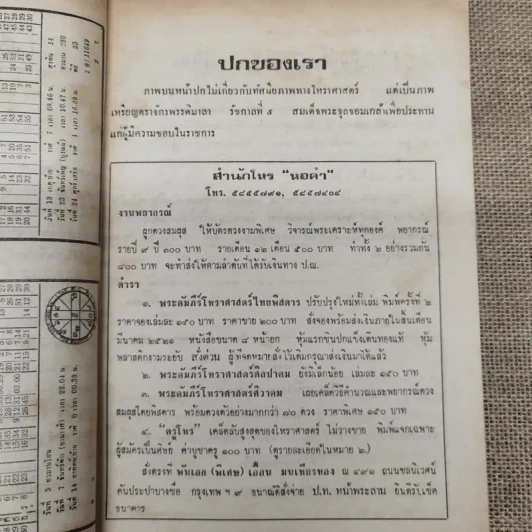 ปกของเรา
ภาพบนหน้าปกไม่เกี่ยวกับทัศนียภาพทางโหราศาสตร์ แต่เป็นภาพ
เหรียญตราจักรพรรดิมาลา รัชกาลที่ ๕ สมเด็จพระจุลจอมเกล้าเพื่อประทาน
แก่ผู้มีความชอบในราชการ
สำนักโหร "หอคำ"
โทร. ๕๘๕๕๗๙๑, ๕๘๕๗๔๐๔
งานพยากรณ์
ผูกดวงสมผุส ให้บัตรดวงงามพิเศษ วิจารณ์พระเคราะห์ทุกองค์ พยากรณ์
รายปี ๙ ปี ๓๐๐ บาท รายเดือน ๑๒ เดือน ๕๐๐ บาท ทำทั้ง ๒ อย่างรวมกัน
๘๐๐ บาท จะทำส่งให้ตามลำดับที่ได้รับเงินทาง ป.ณ.
ตำรา
๑. พระคัมภีร์โหราศาสตร์ไทยพิสดาร ปรับปรุงใหม่ทั้งเล่ม พิมพ์ครั้งที่ ๒
ราคาจองเล่มละ ๑๕๐ บาท ราคาขาย ๒๐๐ บาท สั่งจองพร้อมส่งเงินภายในสิ้นเดือน
มีนาคม ๒๕๒๑ หนังสือขนาด ๘ หน้ายก หุ้มแรกซินปกแข็งเดินทองแท้ หุ้ม
พลาสติคงามระยับ สั่งด่วน ผู้ที่จดหมายสั่งไว้เดิมกรุณาส่งเงินมาได้แล้ว
๒. พระคัมภีร์โหราศาสตร์ศิลปาคม ยังมีเล็กน้อย เล่มละ ๑๕๐ บาท
๓. พระคัมภีร์โหราศาสตร์ศิวาคม เผยเคล็ดวิธีคำนวณและพยากรณ์ดวง
สมผุสโดยพิสดาร พร้อมดวงตัวอย่างมากกว่า ๗๐ ดวง ราคาพิเศษ ๑๕๐ บาท
๔. "ครูโหร" เคล็ดลับสูงสุดของโหราศาสตร์ ไม่วางขาย พิมพ์แจกเฉพาะ
ผู้สมัครเป็นศิษย์ ค่าบูชาครู ๑๐๐ บาท (ดูรายละเอียดในหมาย ๒.)
สั่งตรงที่ พันเอก (พิเศษ) เอื้อน มนเทียรทอง ณ ๔๙๑ ถนนชลนิเวศน์
คันประปาบางซื่อ กรุงเทพ ฯ ๙ ธนาณัติสั่งจ่าย ป.ท. หน้าพระลาน ยินดีรับเช็ค
ธนาคาร